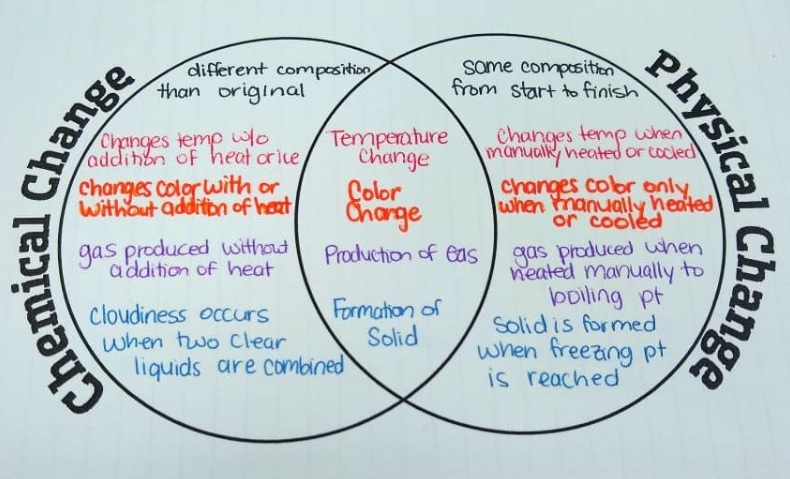 Chemical Change
different composition
than original
Changes temp w/o
addition of heat or ice
changes color with or
without addition of heat
gas produced without
addition of heat
Cloudiness occurs
when two clear
liquids are combined
Temperature
Change
Color
Change
Production of Gas
Formation of
Solid
Physical Change
same composition
from start to finish
Changes temp when
manually heated or cooled
changes color only
when manually heated
or cooled
gas produced when
heated manually to
boiling pt
Solid is formed
when freezing pt
is reached